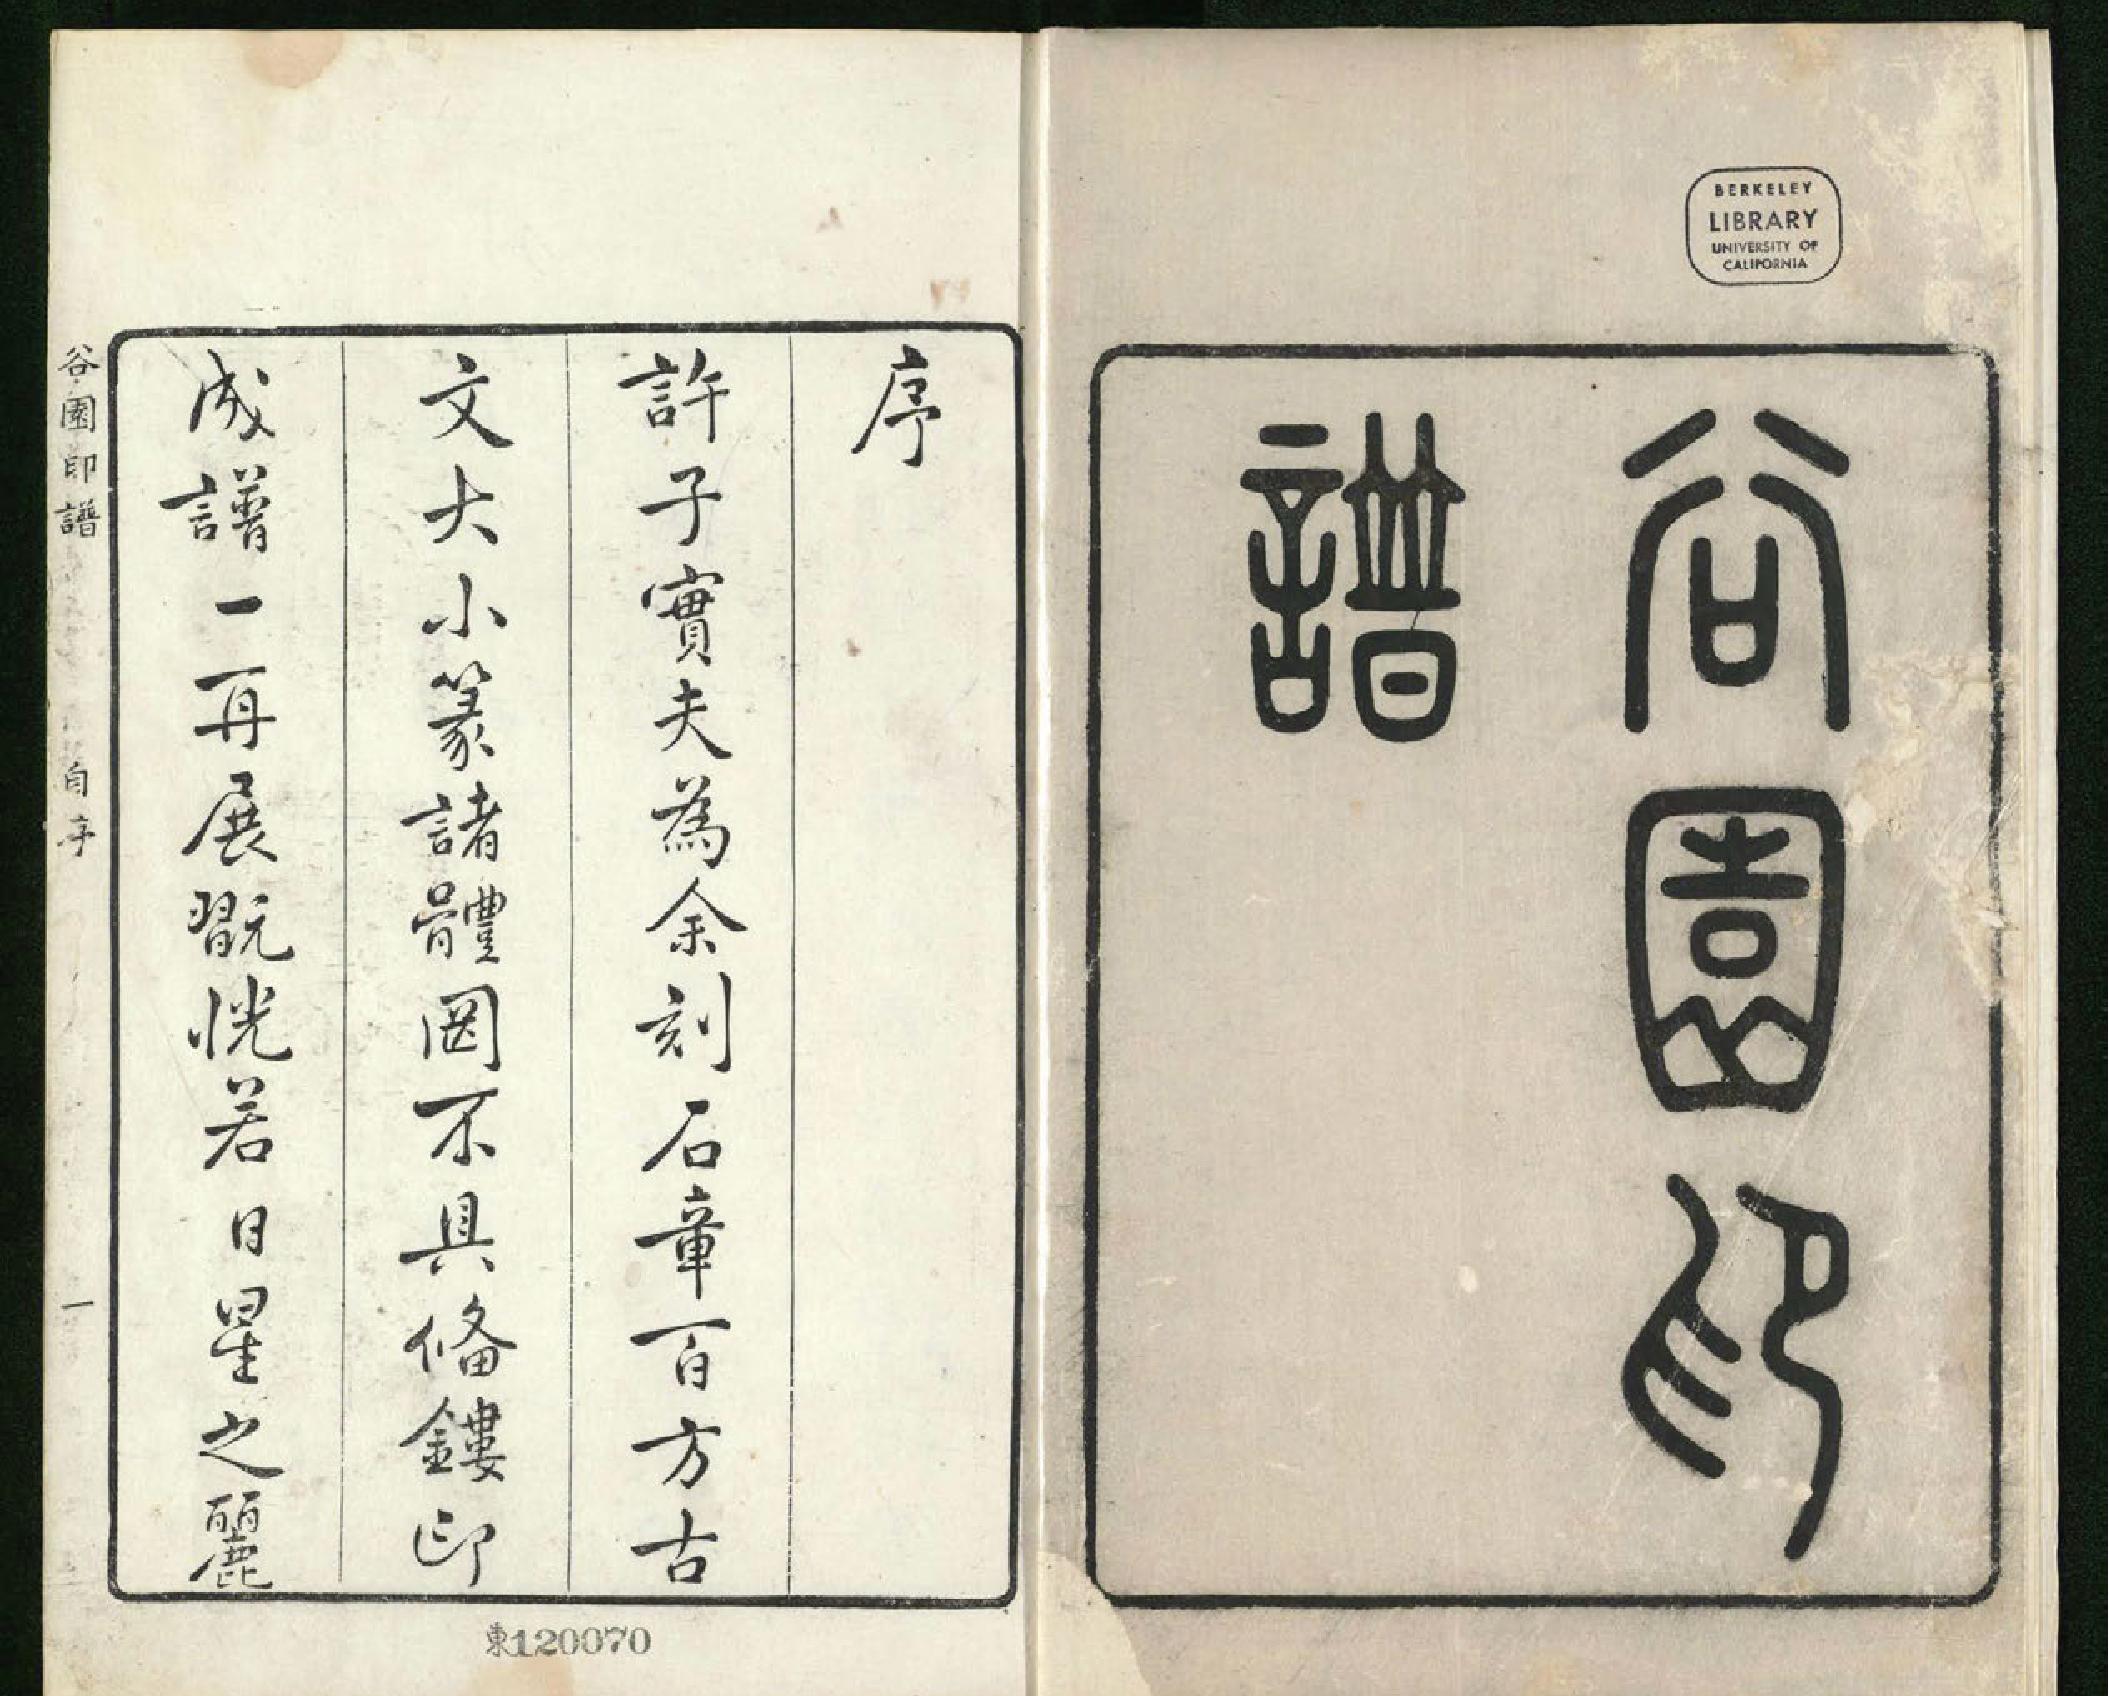 BERKELEY
LIBRARY
UNIVERSITY OF
CALIFORNIA
谷園印
譜
序
許子實夫為余刻石章百方古
文大小篆諸體罔不具俻鏤印
成譜一再展翫恍若日星之麗
谷園印譜
自序
一
東120070